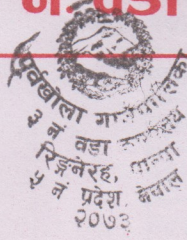 पूर्वखोला गाउँपालिका
३ नं वडा कार्यालय
रिङ्नेरह, पाल्पा
५ नं प्रदेश, नेपाल
२०७३